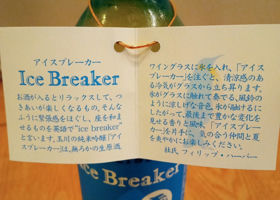 アイスブレーカー
Ice Breaker
お酒が入るとリラックスして、つ
きあいが楽しくなるもの。そんな
ふうに緊張感をほぐし、座を和ま
せるものを英語で"ice breaker"
と言います。玉川の純米吟醸「アイ
スブレーカー」は、無ろかの生原酒
ワイングラスに氷を入れ、「アイス
ブレーカー」を注ぐと、清涼感のあ
る冷気がグラスから立ち昇ります。
氷がグラスに触れて奏でる、風鈴の
ように涼しげな音色。氷が融けるに
したがって、最後まで豊かな変化を
見せる香りと風味。「アイスブレー
カー」を片手に、気の合う仲間と夏
を爽やかにお楽しみください。
杜氏 フィリップ・ハーパー
Ice Breaker